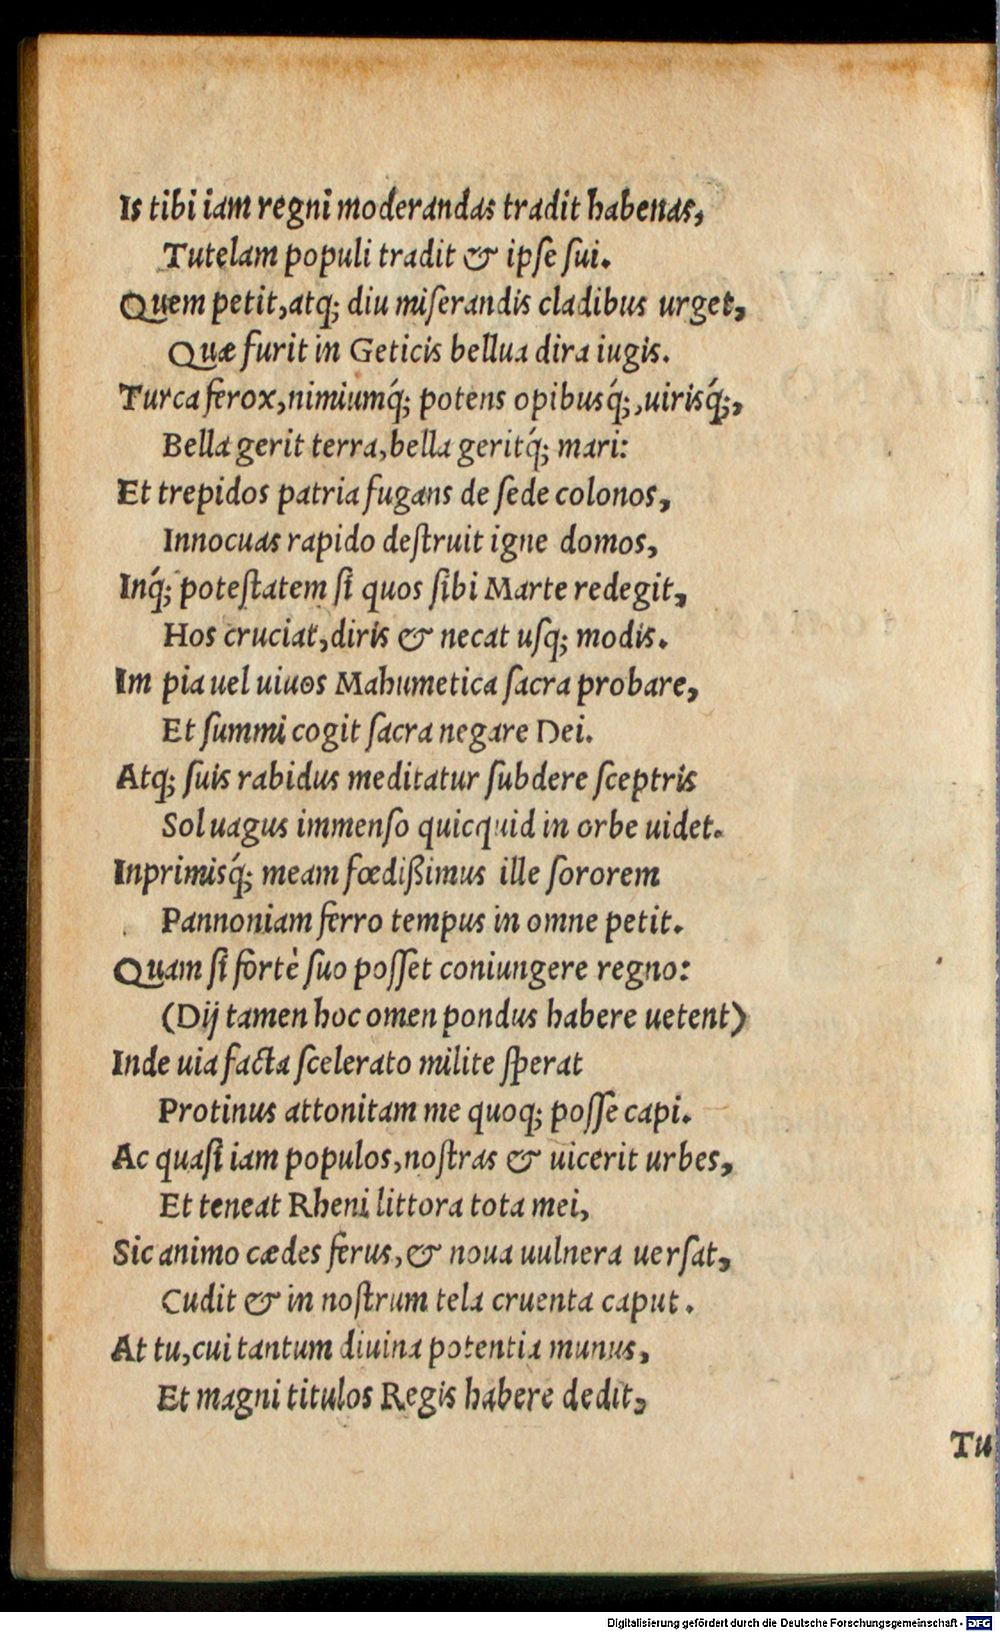 Is tibi iam regni moderandas tradit habenas,
Tutelam populi tradit & ipſe ſui.
Quem petit, atq; diu miſerandis cladibus urget,
Quæ furit in Geticis bellua dira iugis.
Turca ferox, nimiumq́; potens opibusq́;, uirisq́;,
Bella gerit terra, bella geritq́; mari:
Et trepidos patria fugans de ſede colonos,
Innocuas rapido deſtruit igne domos,
Inq́; poteſtatem ſi quos ſibi Marte redegit,
Hos cruciat, diris & necat uſq; modis.
Im pia uel uiuos Mahumetica ſacra probare,
Et ſummi cogit ſacra negare Dei.
Atq; ſuis rabidus meditatur ſubdere ſceptris
Sol uagus immenſo quicquid in orbe uidet.
Inprimisq́; meam fœdißimus ille ſororem
Pannoniam ferro tempus in omne petit.
Quam ſi fortè ſuo poſſet coniungere regno:
(Dij tamen hoc omen pondus habere uetent)
Inde uia facta ſcelerato milite ſperat
Protinus attonitam me quoq; poſſe capi.
Ac quaſi iam populos, noſtras & uicerit urbes,
Et teneat Rheni littora tota mei,
Sic animo cædes ferus, & noua uulnera uerſat,
Cudit & in noſtrum tela cruenta caput.
At tu, cui tantum diuina potentia munus,
Et magni titulos Regis habere dedit,
Tu
Digitalisierung gefördert durch die Deutsche Forschungsgemeinschaft - DFG